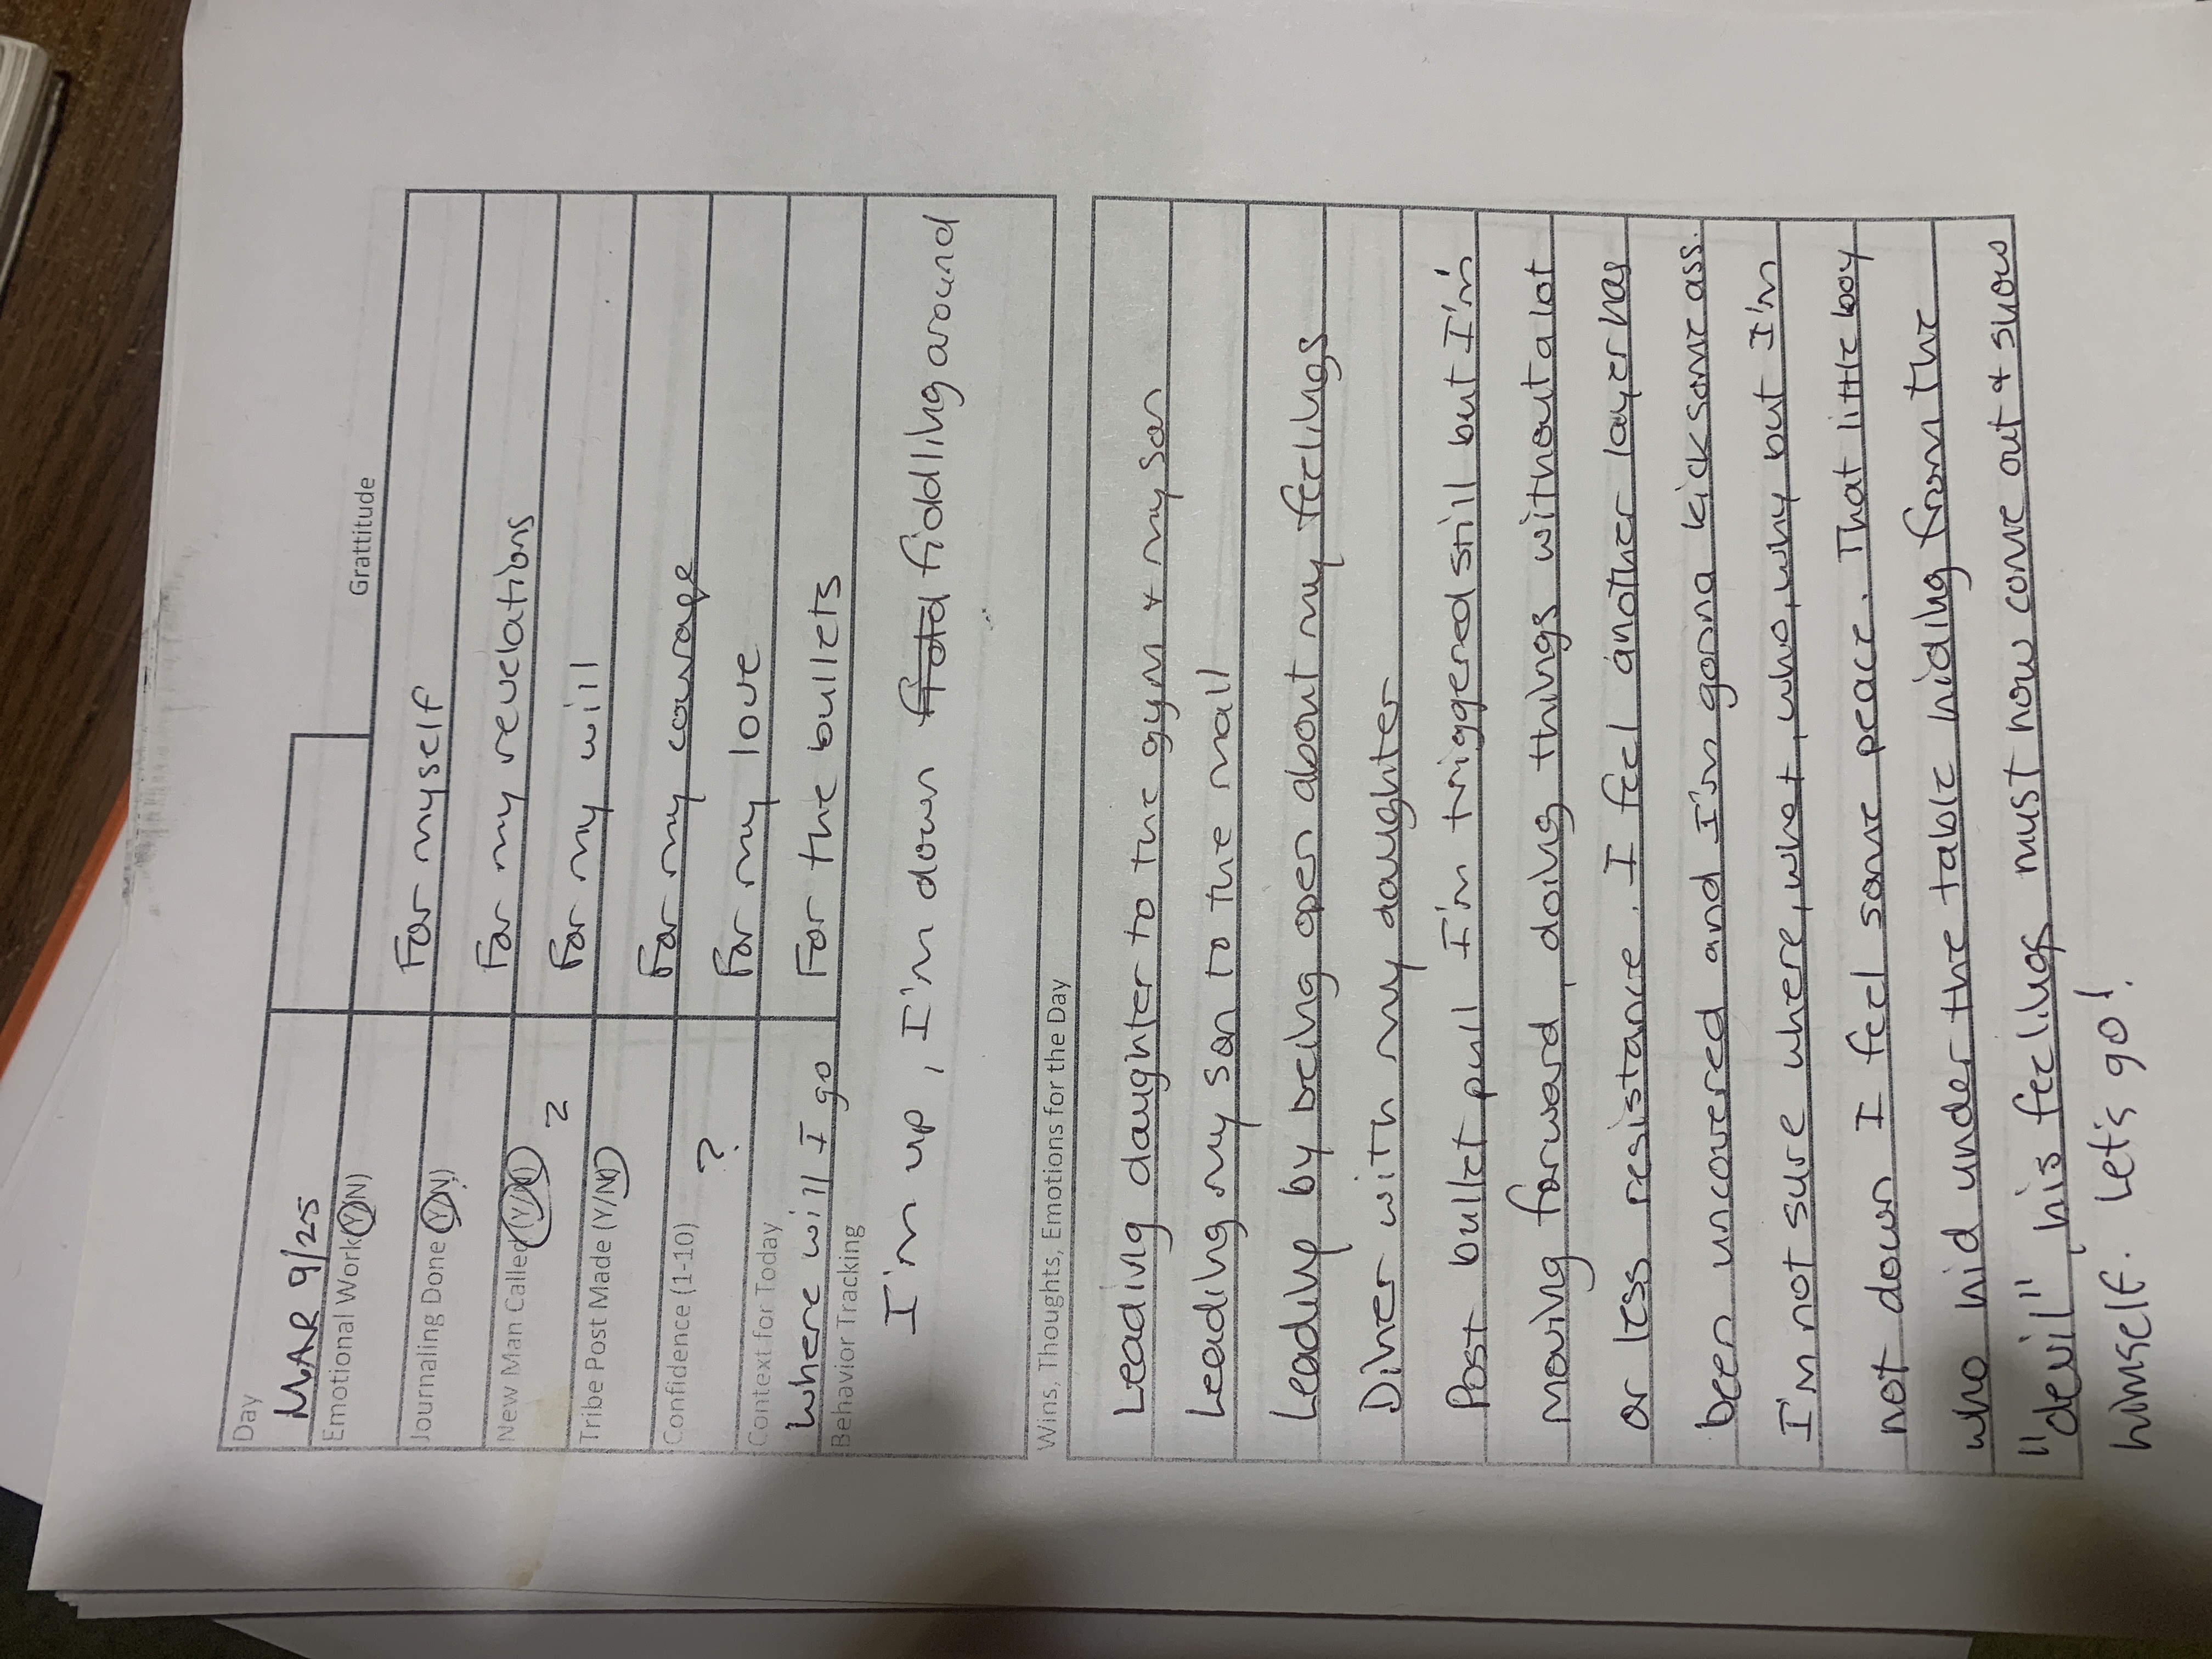 Day
MAR 9/25
Emotional Work (Y/N)
Grattitude
Journaling Done (Y/N)
For myself
New Man Called (Y/N) 2
For my revelations
Tribe Post Made (Y/N)
For my will
Confidence (1-10)
?
For my courage
Context for Today
For my love
Where will I go
For the bullets
Behavior Tracking
I'm up, I'm down fiddling around
Wins, Thoughts, Emotions for the Day
Leading daughter to the gym & my son
Leading my son to the mall
Leading by being open about my feelings
Diner with my daughter
Post bullet pull I'm triggered still but I'm
moving forward, doing things without a lot
or less resistance. I feel another layer has
been uncovered and I'm gonna kick some ass.
I'm not sure where, what, who, why but I'm
not down I feel some peace. That little boy
who hid under the table hiding from the
"devil", his feelings must now come out & show
himself. Let's go!